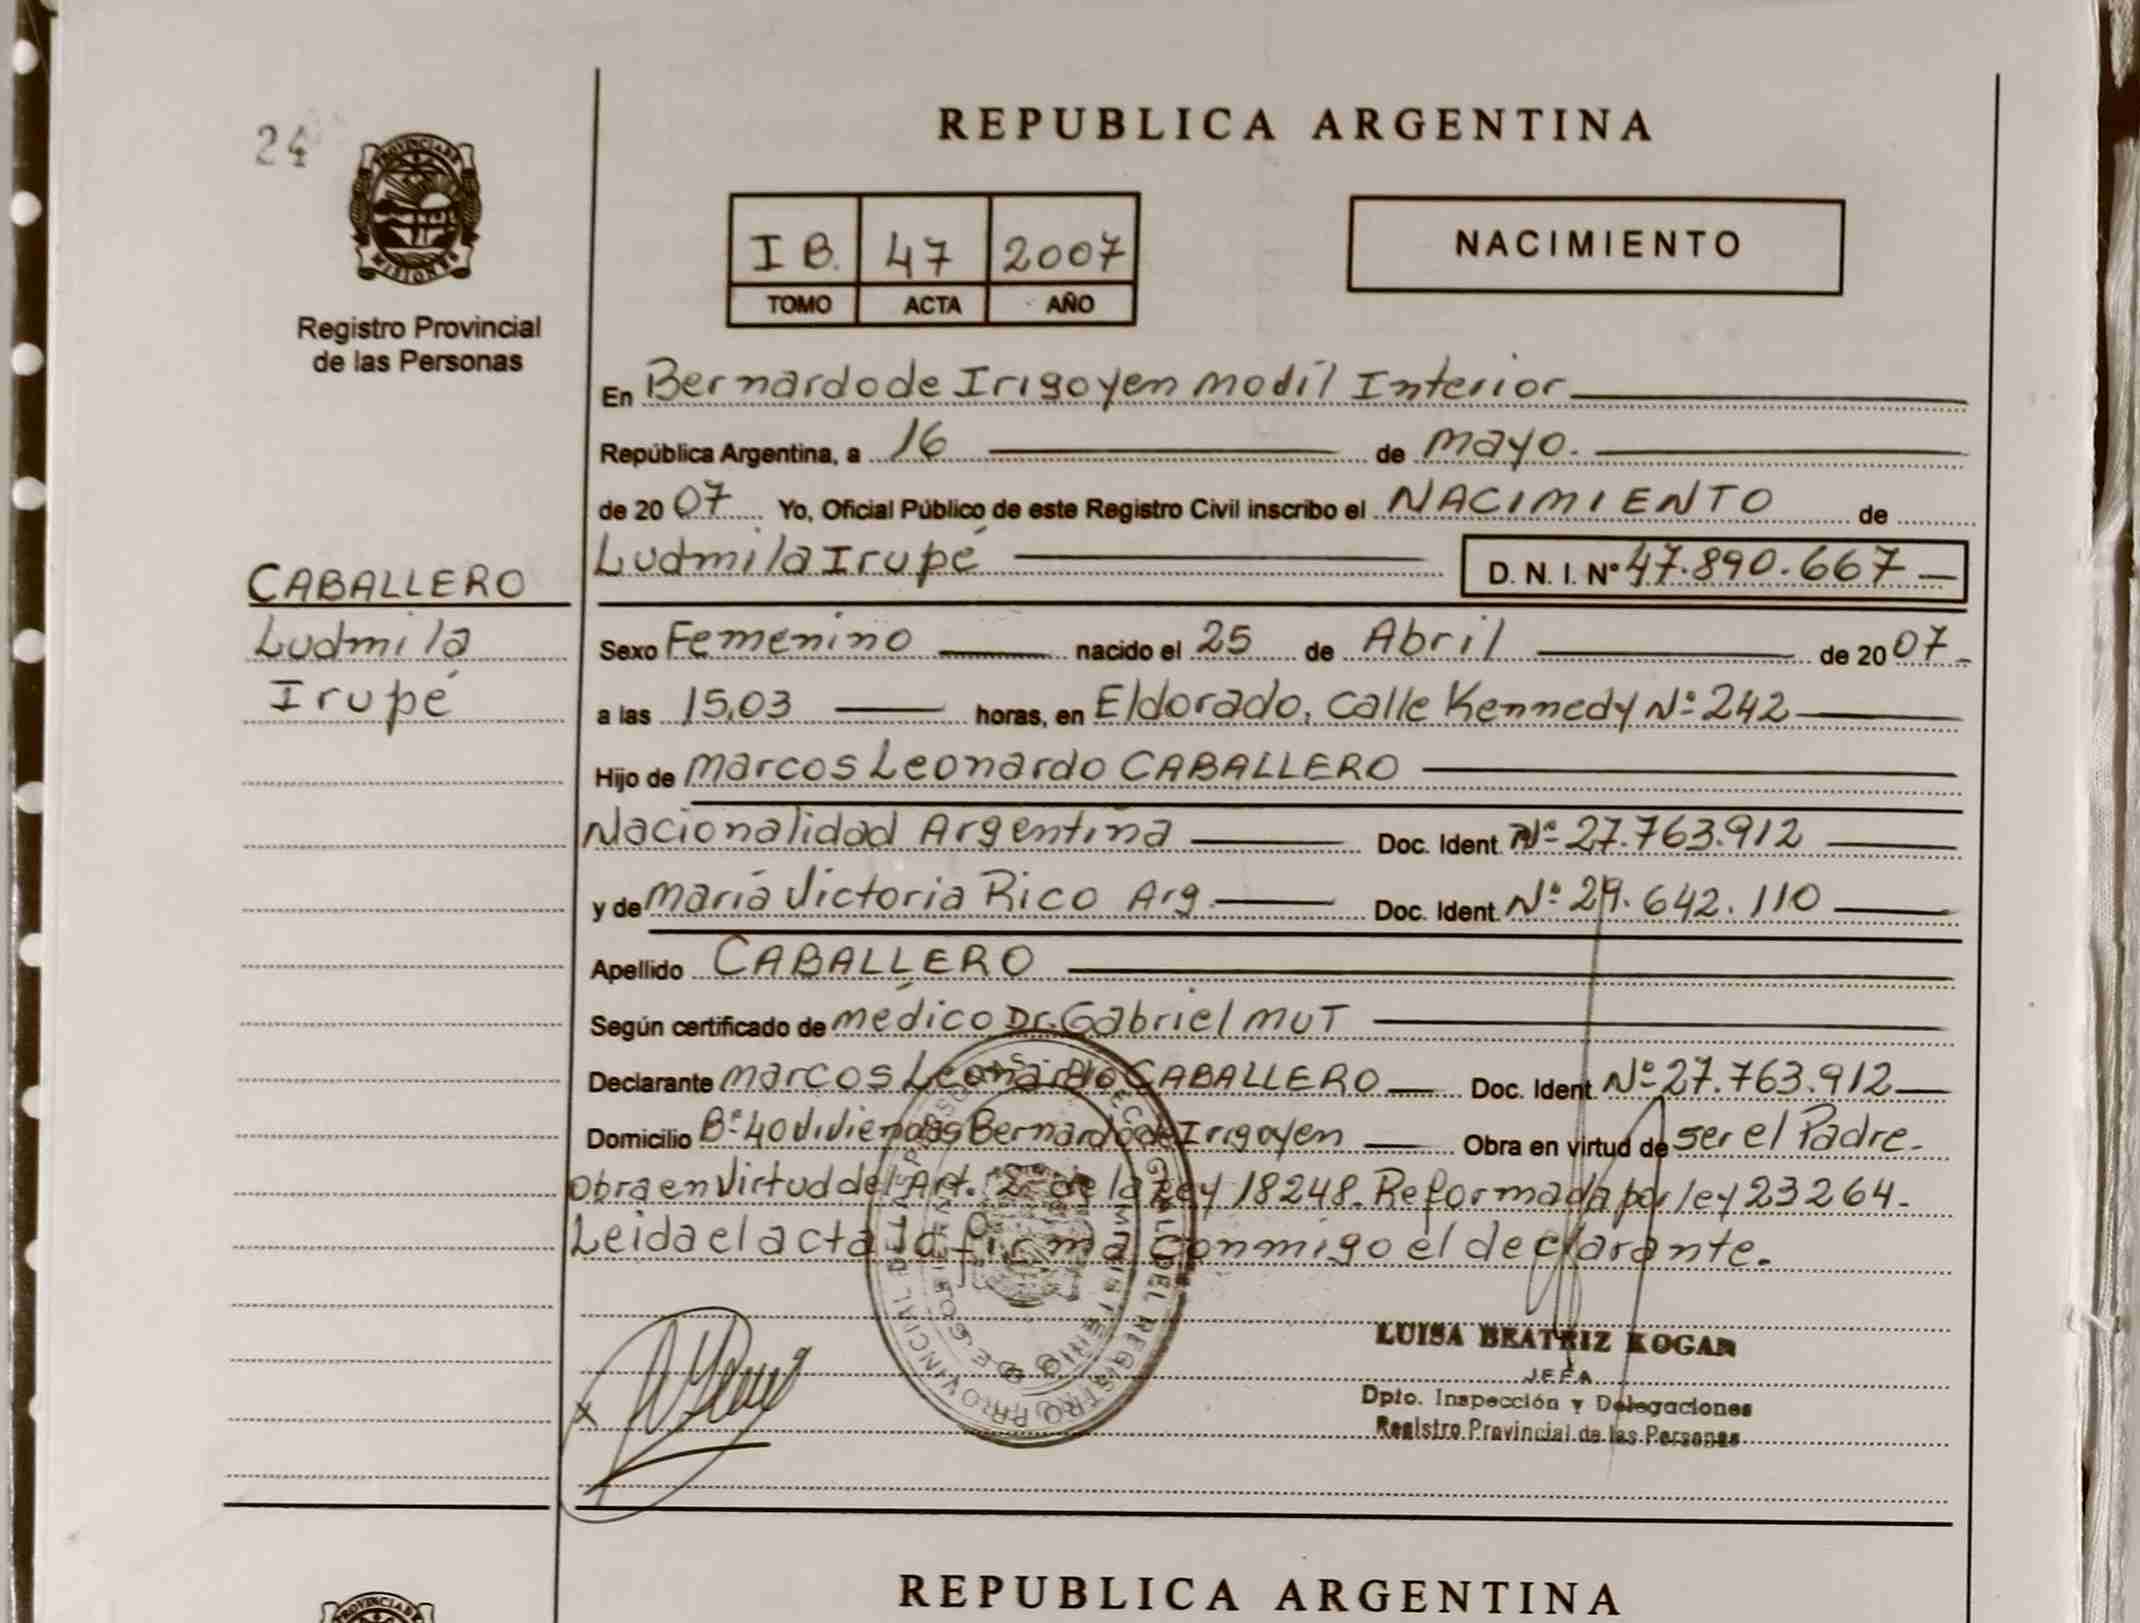 24
PROVINCIA DE
MISIONES
Registro Provincial
de las Personas
CABALLERO
Ludmila
Irupé
REPUBLICA ARGENTINA
I B. 47 2007
TOMO ACTA AÑO
NACIMIENTO
En Bernardo de Irigoyen Modil Interior
República Argentina, a 16 de Mayo.
de 20 07 Yo, Oficial Público de este Registro Civil inscribo el NACIMIENTO de
Ludmila Irupé D. N. I. Nº 47.890.667
Sexo Femenino nacido el 25 de Abril de 20 07
a las 15,03 horas, en Eldorado, calle Kennedy Nº 242
Hijo de Marcos Leonardo CABALLERO
Nacionalidad Argentina Doc. Ident. Nº 27.763.912
y de María Victoria Rico Arg. Doc. Ident. Nº 29.642.110
Apellido CABALLERO
Según certificado de médico Dr. Gabriel MUT
Declarante Marcos Leonardo CABALLERO Doc. Ident. Nº 27.763.912
Domicilio Bº 40 Viviendas Bernardo de Irigoyen Obra en virtud de ser el Padre.
Obra en Virtud del Art. de la Ley 18248. Reformada por ley 23264.
Leida el acta la firma conmigo el declarante.
LUISA BEATRIZ KOGAN
JEFA
Dpto. Inspección y Delegaciones
Registro Provincial de las Personas
REPUBLICA ARGENTINA
PROVINCIA DE